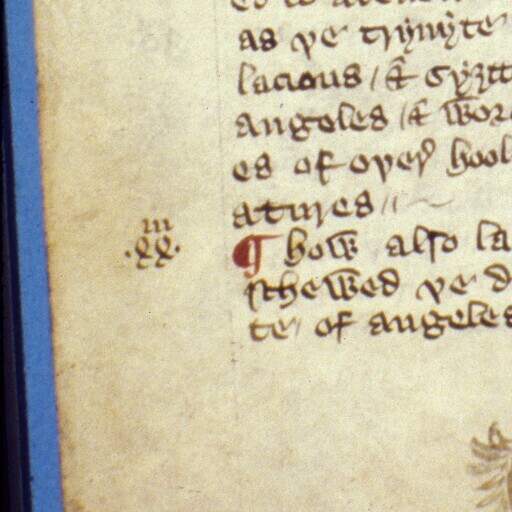 as þe trynyte
lacious / & gyftt
angeles / & wor
es of oþer hool
atures //
iii
.xx.
¶ how also la
schewed þe d
te / of angeles